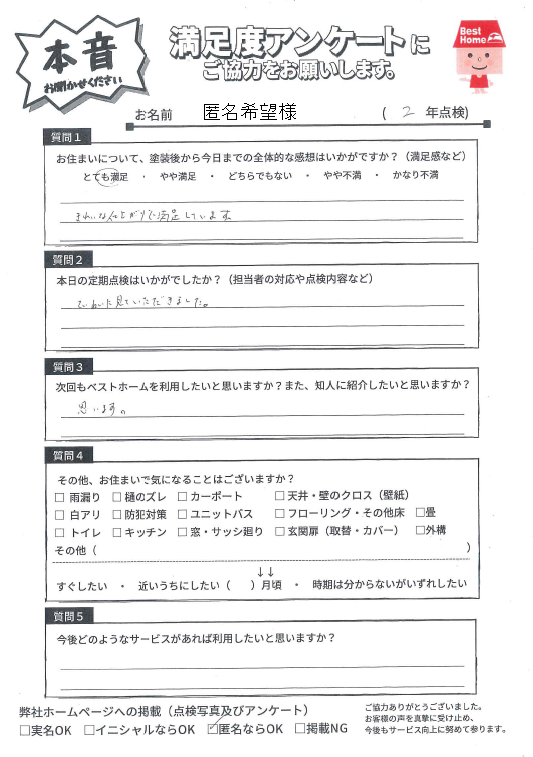 本音
お聞かせください
満足度アンケートに
ご協力をお願いします。
Best
Home
お名前 匿名希望様 ( 2 年点検)
質問1
お住まいについて、塗装後から今日までの全体的な感想はいかがですか？（満足感など）
とても満足 ・ やや満足 ・ どちらでもない ・ やや不満 ・ かなり不満
きれいな仕上がりで満足しています
質問2
本日の定期点検はいかがでしたか？（担当者の対応や点検内容など）
ていねいに見ていただきました。
質問3
次回もベストホームを利用したいと思いますか？また、知人に紹介したいと思いますか？
思います。
質問4
その他、お住まいで気になることはございますか？
□ 雨漏り □ 樋のズレ □ カーポート □ 天井・壁のクロス（壁紙）
□ 白アリ □ 防犯対策 □ ユニットバス □ フローリング・その他床 □畳
□ トイレ □ キッチン □ 窓・サッシ廻り □ 玄関扉（取替・カバー） □外構
その他（ ）
↓↓
すぐしたい ・ 近いうちにしたい（ ）月頃 ・ 時期は分からないがいずれしたい
質問5
今後どのようなサービスがあれば利用したいと思いますか？
弊社ホームページへの掲載（点検写真及びアンケート）
□実名OK □イニシャルならOK ☑匿名ならOK □掲載NG
ご協力ありがとうございました。
お客様の声を真摯に受け止め、
今後もサービス向上に努めて参ります。